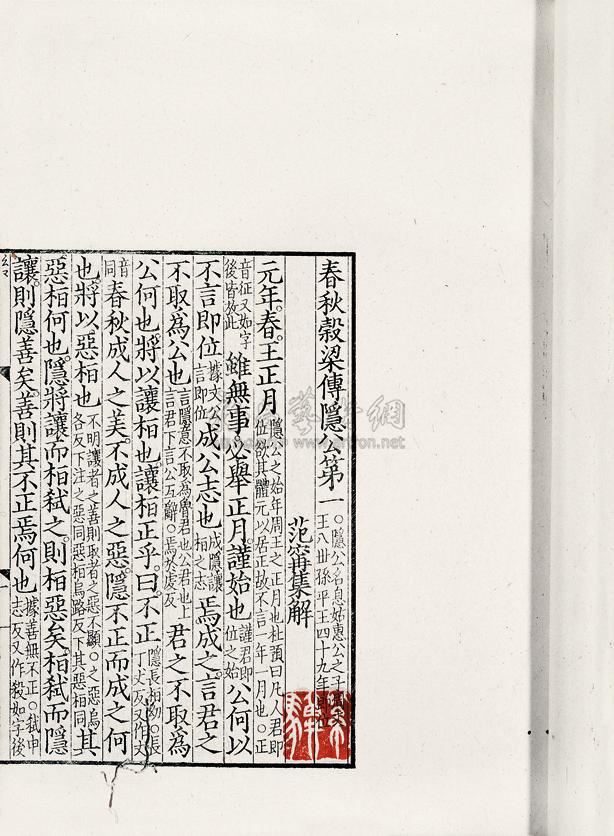 春秋穀梁傳隱公第一 ○隱公名息姑惠公之子周文王八世孫平王四十九年即位
范甯集解
元年春王正月 隱公之始年周王之正月也杜預曰凡人君即位欲其體元以居正故不言一年一月也○正
音征又如字後皆放此 雖無事必舉正月謹始也 謹君即位之始 公何以
不言即位 據文公言即位 成公志也 成隱讓桓之志 焉成之言君之
不取爲公也 言隱意不取爲魯君也公君也上言君下言公互辭○焉於虔反 君之不取爲
公何也將以讓桓也讓桓正乎曰不正 隱長桓幼○長丁丈反又作丈
音同 春秋成人之美不成人之惡隱不正而成之何
也將以惡桓也 不明讓者之善則取者之惡不顯○之惡烏各反下注之惡同惡桓烏路反下其惡桓同 其
惡桓何也隱將讓而桓弒之則桓惡矣桓弒而隱
讓則隱善矣善則其不正焉何也 據善無不正○弒申志反又作殺如字後